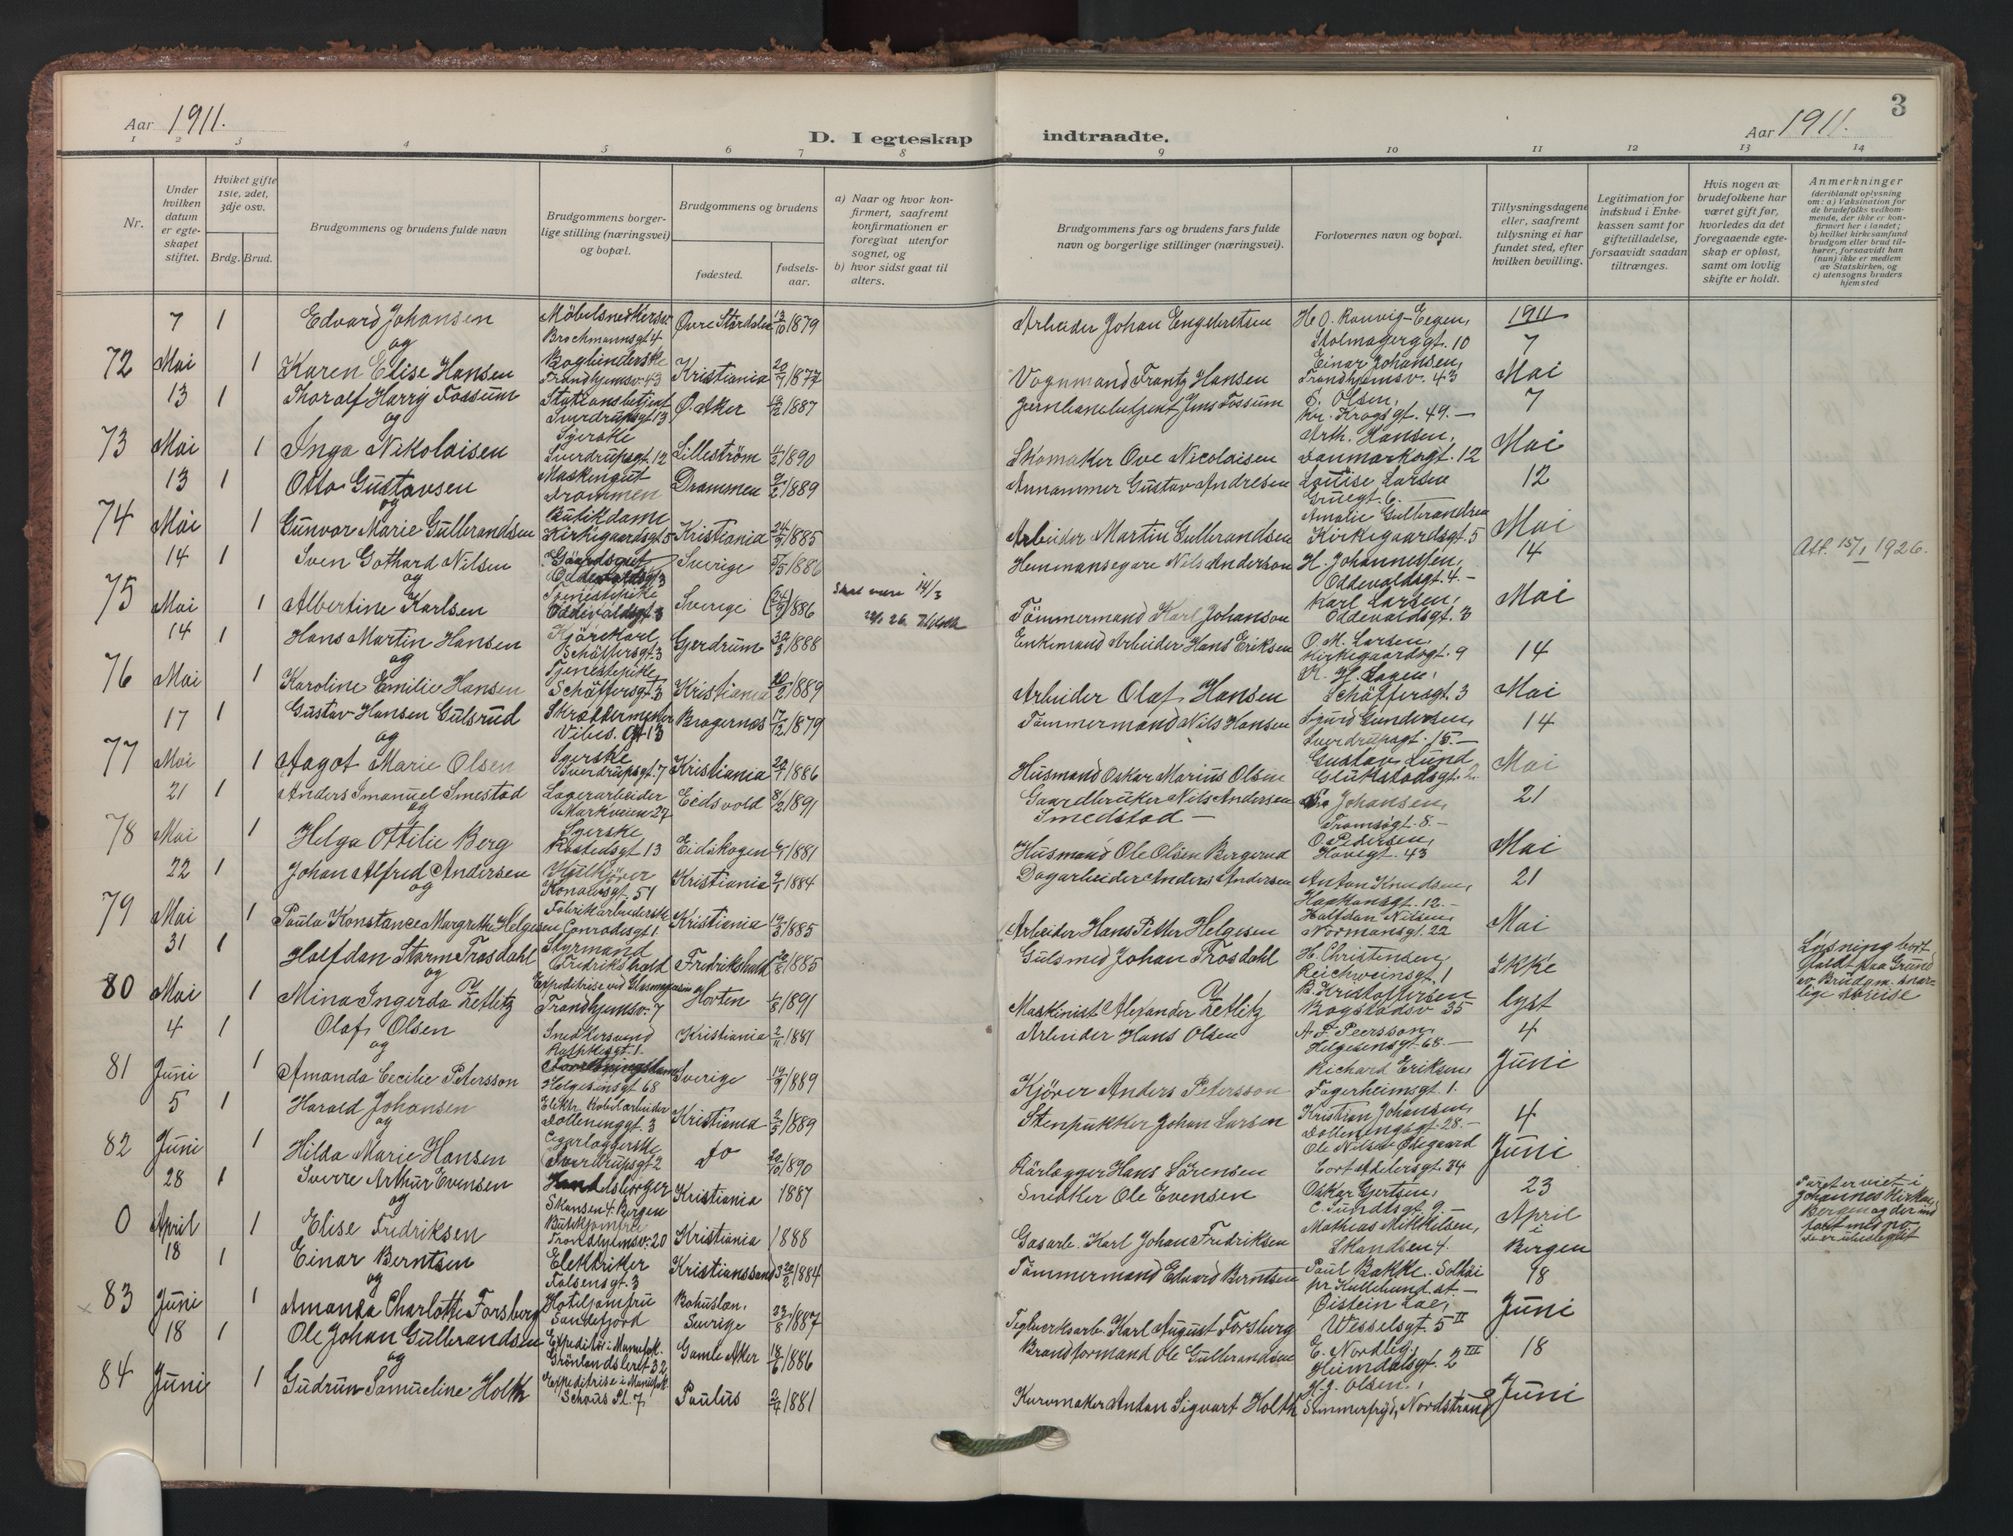 3
Aar 1911.
D. I egteskap indtraadte.
Aar 1911.
1 2 3 4 5 6 7 8 9 10 11 12 13 14
Nr.
Under hvilken datum er egteskapet stiftet.
Hviket gifte 1ste, 2det, 3dje osv.
Brdg. Brud.
Brudgommens og brudens fulde navn
Brudgommens borgerlige stilling (næringsvei) og bopæl.
Brudgommens og brudens
fødested.
fødselsaar.
a) Naar og hvor konfirmert, saafremt konfirmationen er foregaat utenfor sognet, og
b) hvor sidst gaat til alters.
Brudgommens fars og brudens fars fulde navn og borgerlige stillinger (næringsvei).
Forlovernes navn og bopæl.
Tillysningsdagene eller, saafremt tillysning ei har fundet sted, efter hvilken bevilling.
Legitimation for indskud i Enkekassen samt for giftetilladelse, forsaavidt saadan tiltrænges.
Hvis nogen av brudefolkene har været gift før, hvorledes da det foregaaende egteskap er opløst, samt om lovlig skifte er holdt.
Anmerkninger
(deriblandt oplysning om: a) Vaksination for de brudefolks vedkommende, der ikke er konfirmert her i landet;
b) hvilket kirkesamfund brudgom eller brud tilhører, forsaavidt han (hun) ikke er medlem av Statskirken, og
c) utensogns bruders hjemsted
72 7 Mai 1 1
Edvard Johansen
og
Karen Elise Hansen
Brochmannsgt 4
Trondhjemsv. 43
Øvre Stordalen 13/10 1879
Kristiania 20/9 1877
Arbeider Johan Engebretsen
Vognmand Frantz Hansen
Stolmagergt. 10
Einar Johansen,
Trondhjemsv. 43
1911
7
Mai
73 13 Mai 1 1
Thoralf Harry Fossum
og
Inga Nikolaisen
Stationsbetjent
Sverdrupsgt 13
Syerske
Sverdrupsgt 12
Ø. Aker 1887
Lilleström 1890
Jernbanebetjent Jens Fossum
Skomaker Ove Nicolaisen
Olsen,
Kr. Krogsgt. 49. —
Arth. Hansen,
Danmarksgt. 12
7
Mai
74 13 Mai 1 1
Otto Gustavsen
og
Gunvor Marie Gulbrandsen
Drammen
Butikdame
Kirkegaardsgt 5
Drammen 1889
Kristiania 1885
Gustav Andresen
Arbeider Martin Gulbrandsen
Louise Larsen
Gruegt. 6.
Amalie Gulbrandsen
Kirkegaardsgt. 5
12
Mai
75 14 Mai 1 1
Sven Gothard Nilsen
og
Albertine Karlsen
Gaardsgut
Tjenestepike
Oddevaldsgt 3
Sverige 5/5 1886
Sverige 1886
Skal være 14/3
Hemmansegare Nils Anderson
Tömmermand Karl Johanson
H. Johannessen,
Oddevaldsgt. 4. —
Karl Larsen,
Oddevaldsgt. 3
14
Mai
Att. 15/1 1926.
76 14 Mai 1 1
Hans Martin Hansen
og
Karoline Emilie Hansen
Kjörekarl,
Schäffersgt. 3
Tjenestepike
Schäffersgt. 3
Gjerdrum 1888
Kristiania 1889
Enkemand Arbeider Hans Eriksen
Arbeider Olaf Hansen
O. M. Larsen,
Kirkegaardsgt. 9
Schäffersgt. 3
14
Mai
77 17 Mai 1 1
Gustav Hansen Gulsrud
og
Aagot Marie Olsen
Skræddermester
Vibes. Gt 13
Syerske
Sverdrupsgt. 7
Bragernæs 17/12 1879
Kristiania 1886
Tömmermand Nils Hansen
Husmand Oskar Marius Olsen
Sigurd Gundersen,
Sverdrupsgt. 15. —
Gustav Lund
Glukstadsgt. 2
14
Mai
78 21 Mai 1 1
Anders Imanuel Smestad
og
Helga Ottilie Berg
Lagerarbeider
Markveien 27
Syerske
Rostedsgt 13
Eidsvold 8/2 1891
Eidskogen 1881
Gaardbruker Nils Andersen
Smedstad —
Husmand Ole Olsen Bergerud
Johansen,
Tromsøgt. 8. —
O. Pedersen,
43
21
Mai
79 22 Mai 1 1
Johan Alfred Andersen
og
Paula Konstance Margrethe Helgesen
Kulkjører
51
Fabrikarbeiderske
Conradisgt 1
Kristiania 1884
Kristiania 1885
Dagarbeider Anders Andersen
Arbeider Hans Petter Helgesen
Anton Knudsen,
Haakonsgt. 12. —
Halfdan Nilsen,
Normansgt. 22
21
Mai
80 31 Mai 1 1
Halfdan Storm Trosdahl
og
Mina Ingerda Zetlitz
Styrmand
Fredrikshald
Trondhjemsv. 7
Fredrikshald 1885
Horten 1891
Gulsmed Johan Trosdahl
Maskinist Alexander Zetlitz
H. Christensen,
Reichweinsgt. 1
B. Kristoffersen
Bogstadsv 35
Ikke
lyst
Løsning bort-
faldt paa Grund
av Brudgm. snar-
lige avreise
81 4 Juni 1 1
Olaf Olsen
og
Amanda Cecilie Petersson
Snedkersvend
Helgesensgt 68
Kristiania 1881
Sverige 1889
Arbeider Hans Olsen
Kjörer Anders Petersson
A. F. Peersson,
Helgesensgt 68. —
Richard Eriksen,
Fagerheimsgt. 1.
4
Juni
82 5 Juni 1 1
Harald Johansen
og
Hilda Marie Hansen
Elektr. Kabelarbeider
Dælenenggt. 3
Sverdrupsgt 2
Kristiania 1889
do 1890
Stenpukker Johan Larsen
Rörlægger Hans Sörensen
Kristian Johansen,
Dælenengsgt. 28. —
Ole Nilsen Ødegaard
Cort Adelersgt. 34
4
Juni
0 28 April 1 1
Sverre Arthur Evensen
og
Elise Fredriksen
Handelsborger
Skansen 4. Bergen
Butikjomfru
Trondhjemsv. 20
Kristiania 1887
Kristiania 1888
Snedker Ole Evensen
Gasarb. Karl Johan Fredriksen
Oskar Gjertsen,
E. Sundtsgt. 9. —
Mathias Mikkelsen,
Skandsen 4.
23
April
i
Bergen
Paret er viet i
Johannes Kirken,
Bergen og der ind
ført med no.
83 18 Juni 1 1
Einar Berntsen
og
Amanda Charlotte Forsberg
Elektriker
Falsensgt. 3
Hoteljomfru
Sandefjord
Kristianssand 1884
Bohuslæn, Sverige 23/8 1887
Tömmermand Edvard Berntsen
Teglverksarb. Karl August Forsberg
Paul Bakke.
Øistein Lae,
Wesselsgt. 5 II
18
Juni
84 18 Juni 1 1
Ole Johan Gulbrandsen
og
Gudrun Samueline Holth
Expeditör i Manufak.
Grönlandsleret 32
Expeditrise i Manufak.
Schous Pl. 7
Gamle Aker 1886
Paulus 2/4 1881
Brandformand Ole Gulbrandsen
Kurvmaker Anton Sigvart Holth
E. Nordlie,
Heimdalsgt. 2 III
H. J. Olsen,
Sommerfryd, Nordstrand
18
Juni